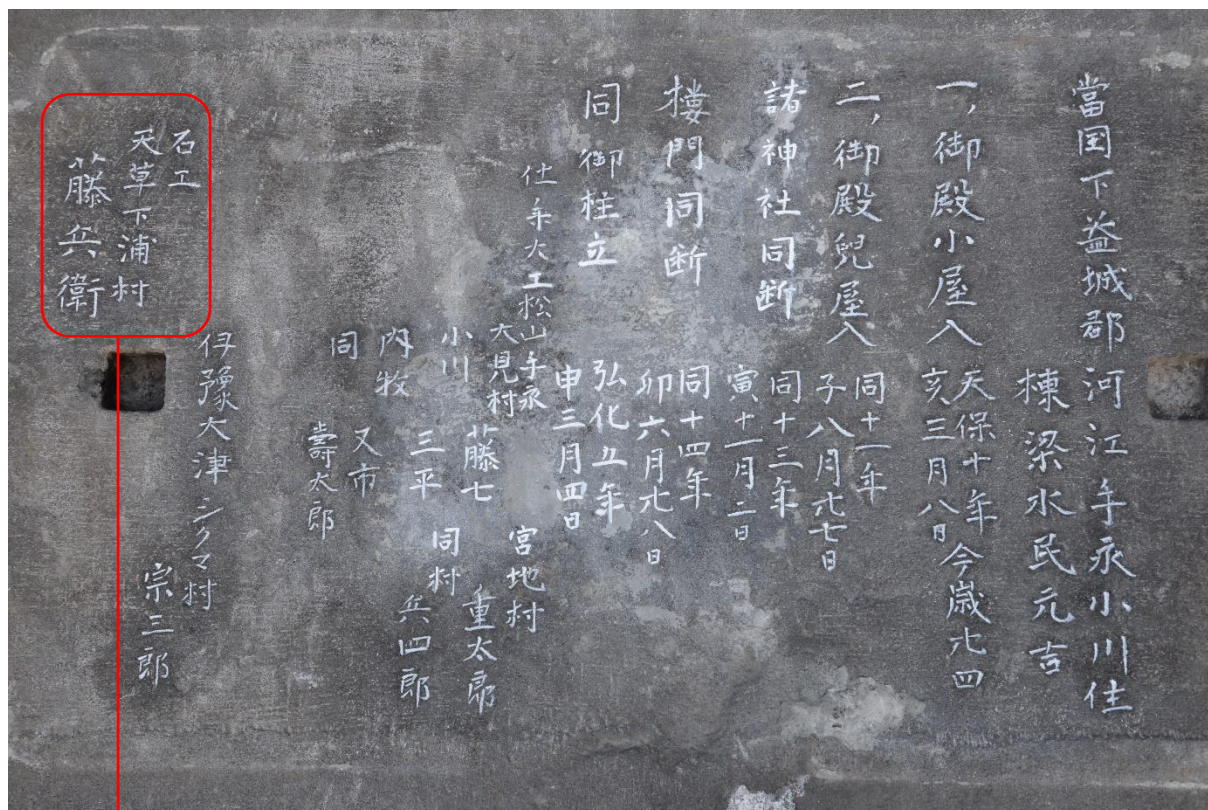 當国下益城郡河江手永小川住
棟梁水民元吉
一,御殿小屋入
天保十年今歳廿四
亥三月八日
二,御殿兒屋入
同十一年
子八月廿七日
諸神社同断
同十三年
寅十一月二日
楼門同断
同十四年
卯六月廿八日
同御柱立
弘化五年
申三月四日
仕手大工松山手永
大見村
藤七
宮地村
重太郎
小川
三平
同村
兵四郎
内牧
又市
同
壽太郎
伊豫大津シクマ村
宗三郎
石工
天草下浦村
藤兵衛